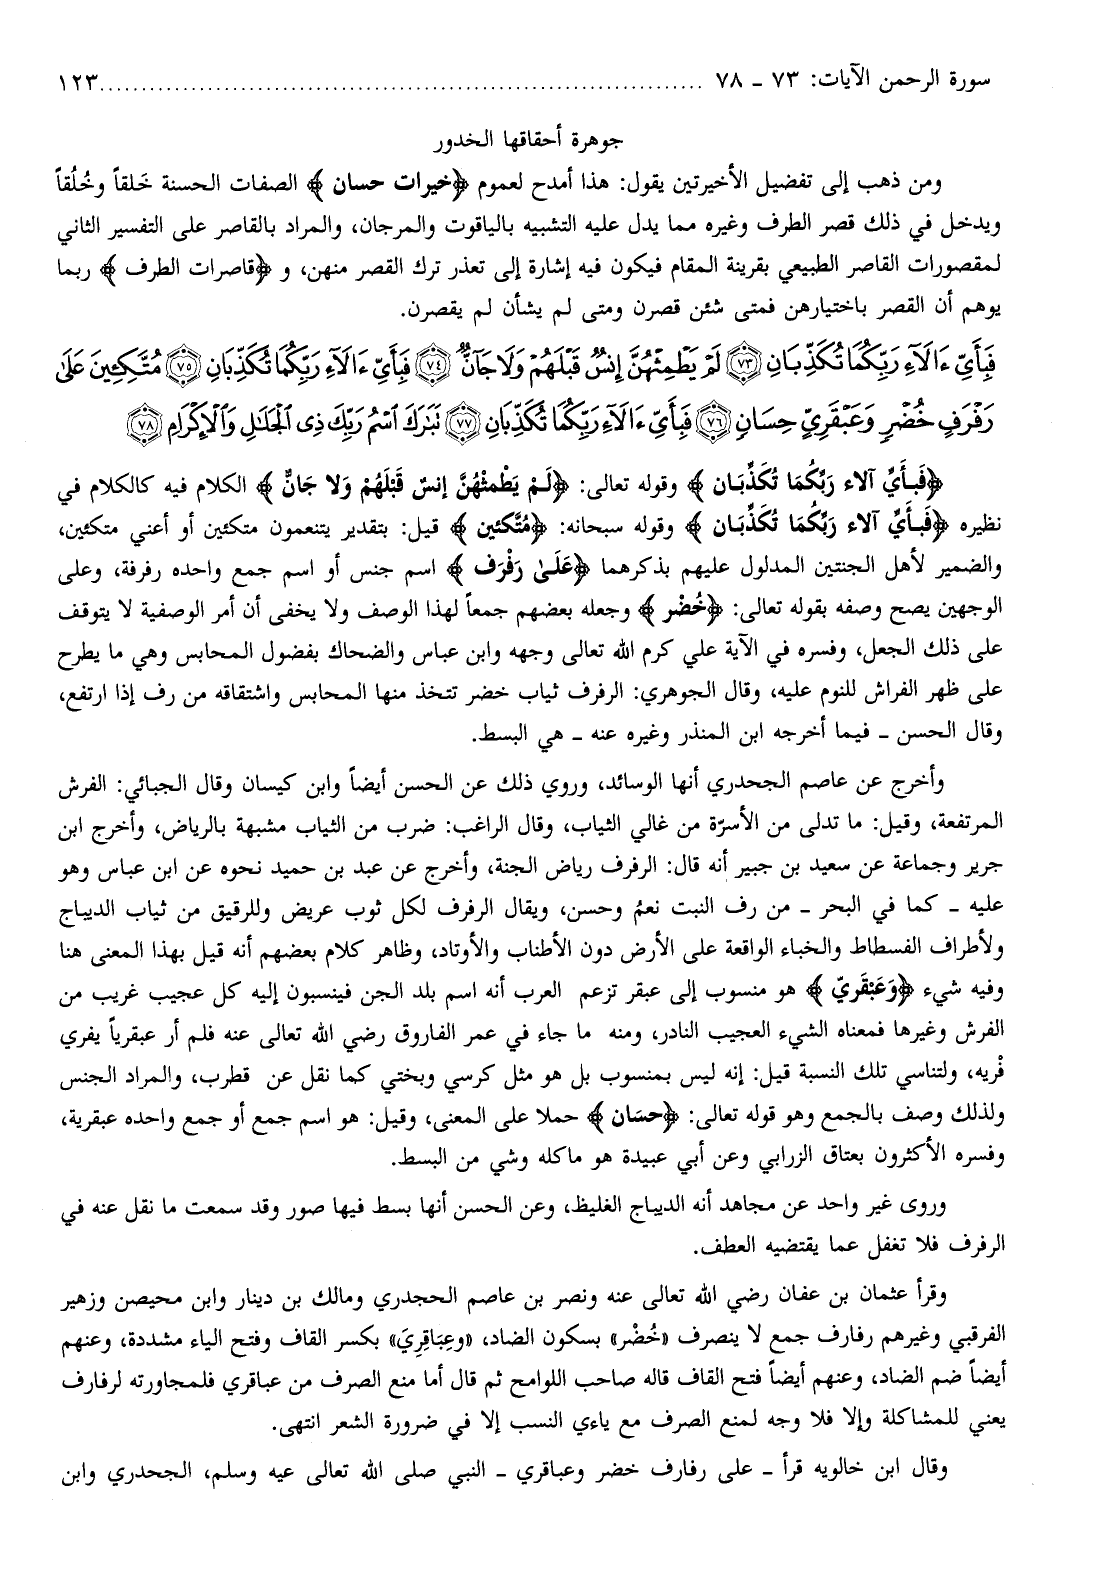 سورة الرحمن الآيات: ٧٣ ـ ٧٨ ........................................................................ ١٢٣
جوهرة أحقاقها الخدور
ومن ذهب إلى تفضيل الأخيرتين يقول: هذا أمدح لعموم ﴿خيرات حسان﴾ الصفات الحسنة خَلقاً وخُلُقاً
ويدخل في ذلك قصر الطرف وغيره مما يدل عليه التشبيه بالياقوت والمرجان، والمراد بالقاصر على التفسير الثاني
لمقصورات القاصر الطبيعي بقرينة المقام فيكون فيه إشارة إلى تعذر ترك القصر منهن، و ﴿قاصرات الطرف﴾ ربما
يوهم أن القصر باختيارهن فمتى شئن قصرن ومتى لم يشأن لم يقصرن.
فَبِأَيِّ ءَالَآءِ رَبِّكُمَا تُكَذِّبَانِ ﴿٧٣﴾ لَمْ يَطْمِثْهُنَّ إِنسٌ قَبْلَهُمْ وَلَا جَآنٌّ ﴿٧٤﴾ فَبِأَيِّ ءَالَآءِ رَبِّكُمَا تُكَذِّبَانِ ﴿٧٥﴾ مُتَّكِـِٔينَ عَلَىٰ
رَفْرَفٍ خُضْرٍ وَعَبْقَرِيٍّ حِسَانٍ ﴿٧٦﴾ فَبِأَيِّ ءَالَآءِ رَبِّكُمَا تُكَذِّبَانِ ﴿٧٧﴾ تَبَٰرَكَ ٱسْمُ رَبِّكَ ذِى ٱلْجَلَٰلِ وَٱلْإِكْرَامِ ﴿٧٨﴾
﴿فَبأَيِّ آلاء رَبِّكُمَا تُكَذِّبَان﴾ وقوله تعالى: ﴿لَمْ يَطْمثْهُنَّ إنسٌ قَبْلَهُمْ وَلا جَانٌّ﴾ الكلام فيه كالكلام في
نظيره ﴿فَبأَيِّ آلاء رَبِّكُمَا تُكَذِّبَان﴾ وقوله سبحانه: ﴿مُتَّكئين﴾ قيل: بتقدير يتنعمون متكئين أو أعني متكئين،
والضمير لأهل الجنتين المدلول عليهم بذكرهما ﴿عَلَىٰ رَفْرَف﴾ اسم جنس أو اسم جمع واحده رفرفة، وعلى
الوجهين يصح وصفه بقوله تعالى: ﴿خُضْر﴾ وجعله بعضهم جمعاً لهذا الوصف ولا يخفى أن أمر الوصفية لا يتوقف
على ذلك الجعل، وفسره في الآية علي كرم الله تعالى وجهه وابن عباس والضحاك بفضول المحابس وهي ما يطرح
على ظهر الفراش للنوم عليه، وقال الجوهري: الرفرف ثياب خضر تتخذ منها المحابس واشتقاقه من رف إذا ارتفع،
وقال الحسن ـ فيما أخرجه ابن المنذر وغيره عنه ـ هي البسط.
وأخرج عن عاصم الجحدري أنها الوسائد، وروي ذلك عن الحسن أيضاً وابن كيسان وقال الجبائي: الفرش
المرتفعة، وقيل: ما تدلى من الأسرّة من غالي الثياب، وقال الراغب: ضرب من الثياب مشبهة بالرياض، وأخرج ابن
جرير وجماعة عن سعيد بن جبير أنه قال: الرفرف رياض الجنة، وأخرج عن عبد بن حميد نحوه عن ابن عباس وهو
عليه ـ كما في البحر ـ من رف النبت نعمُ وحسن، ويقال الرفرف لكل ثوب عريض وللرقيق من ثياب الديباج
ولأطراف الفسطاط والخباء الواقعة على الأرض دون الأطناب والأوتاد، وظاهر كلام بعضهم أنه قيل بهذا المعنى هنا
وفيه شيء ﴿وَعَبْقَريّ﴾ هو منسوب إلى عبقر تزعم العرب أنه اسم بلد الجن فينسبون إليه كل عجيب غريب من
الفرش وغيرها فمعناه الشيء العجيب النادر، ومنه ما جاء في عمر الفاروق رضي الله تعالى عنه فلم أر عبقرياً يفري
فْريه، ولتناسي تلك النسبة قيل: إنه ليس بمنسوب بل هو مثل كرسي وبختي كما نقل عن قطرب، والمراد الجنس
ولذلك وصف بالجمع وهو قوله تعالى: ﴿حسَان﴾ حملا على المعنى، وقيل: هو اسم جمع أو جمع واحده عبقرية،
وفسره الأكثرون بعتاق الزرابي وعن أبي عبيدة هو ماكله وشي من البسط.
وروى غير واحد عن مجاهد أنه الديباج الغليظ، وعن الحسن أنها بسط فيها صور وقد سمعت ما نقل عنه في
الرفرف فلا تغفل عما يقتضيه العطف.
وقرأ عثمان بن عفان رضي الله تعالى عنه ونصر بن عاصم الحجدري ومالك بن دينار وابن محيصن وزهير
الفرقبي وغيرهم رفارف جمع لا ينصرف «خُضْر» بسكون الضاد، «وعِبَاقِرِيَ» بكسر القاف وفتح الياء مشددة، وعنهم
أيضاً ضم الضاد، وعنهم أيضاً فتح القاف قاله صاحب اللوامح ثم قال أما منع الصرف من عباقري فلمجاورته لرفارف
يعني للمشاكلة وإلا فلا وجه لمنع الصرف مع ياءي النسب إلا في ضرورة الشعر انتهى.
وقال ابن خالويه قرأ ـ على رفارف خضر وعباقري ـ النبي صلى الله تعالى عيه وسلم، الجحدري وابن